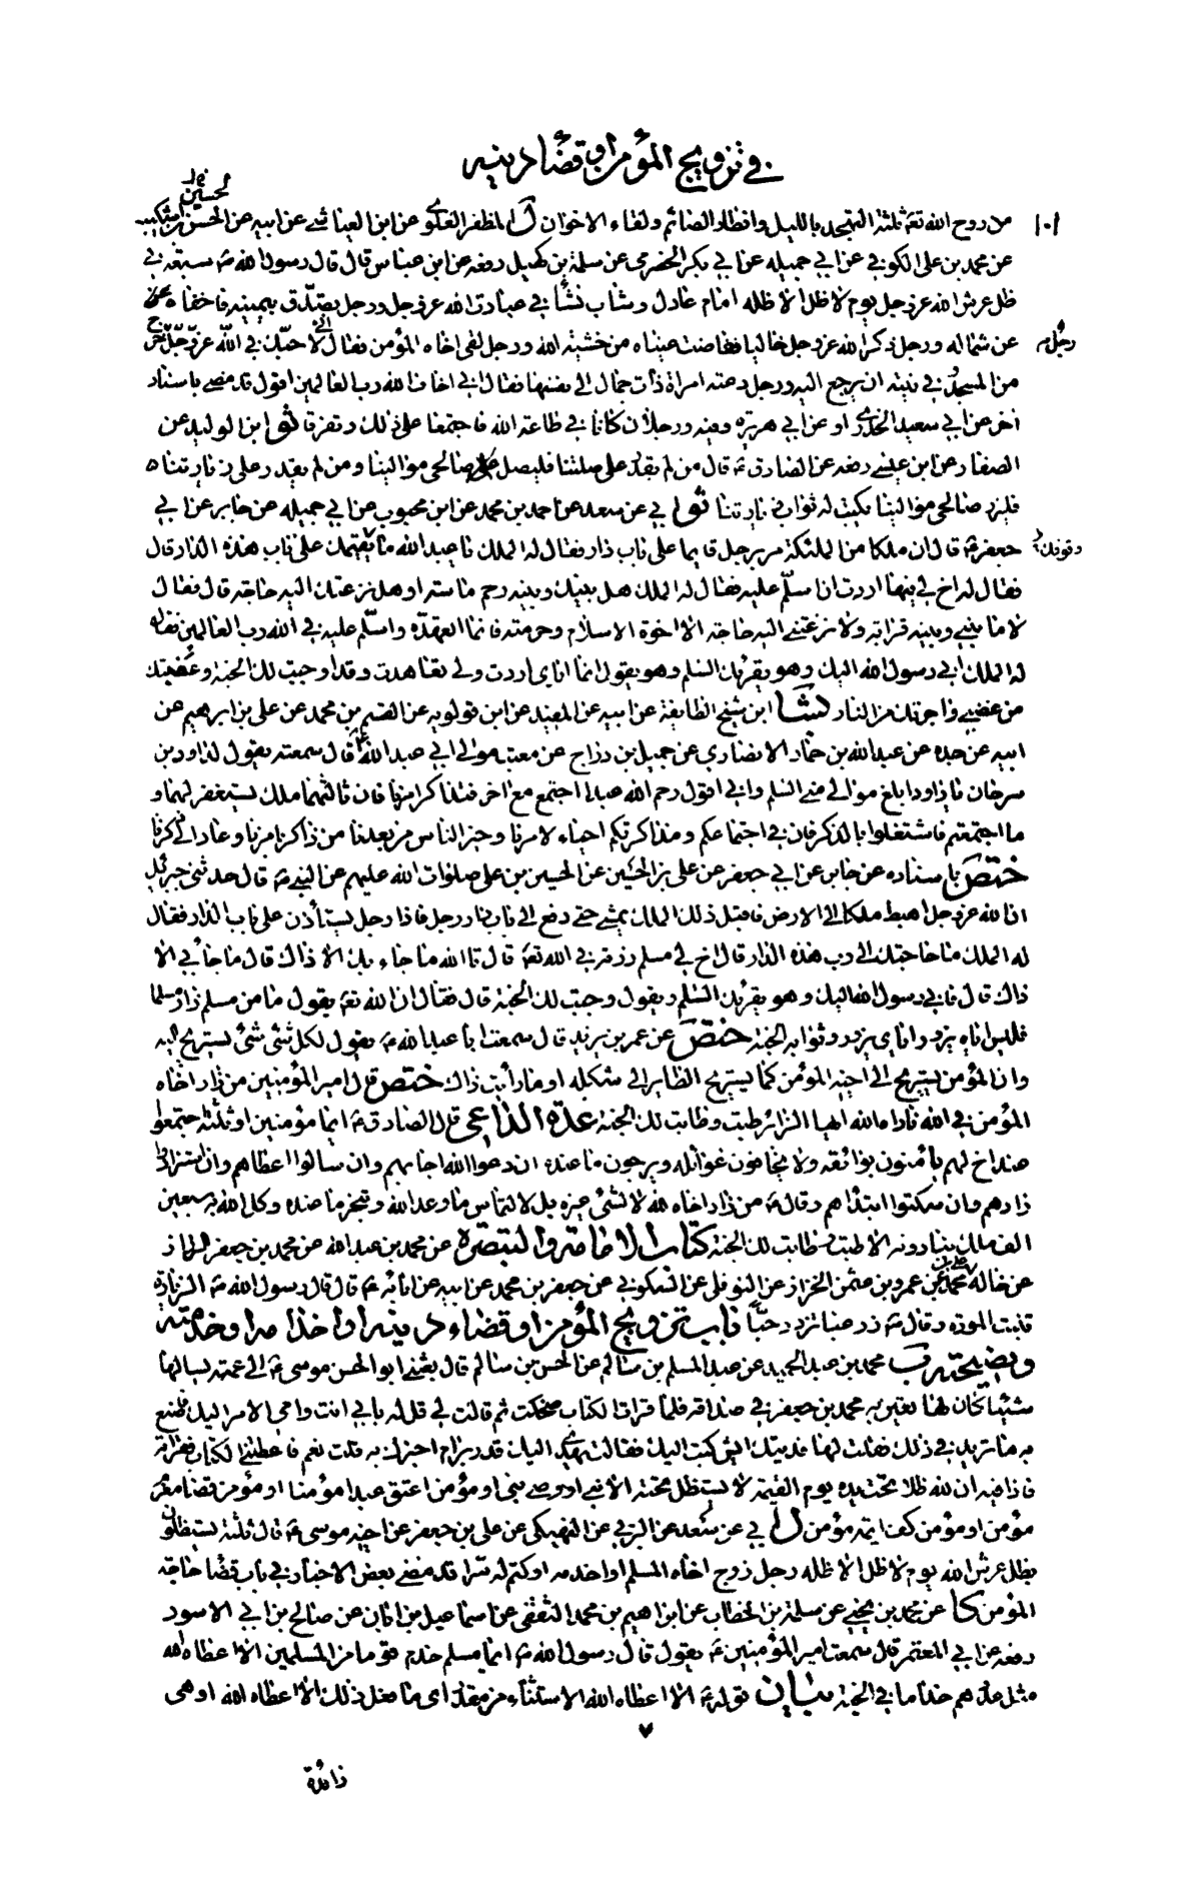 في تزويج المؤمن او قضاء دينه
١٠١
من روح الله تعالى ثلثة التهجد بالليل وافطار الصائم ولقاء الاخوان ل المظفر العلوى عن ابن العياشي عن ابيه عن الحسن بن اشكيب
الحسين خ ل
عن محمد بن على الكوفي عن ابي جميله عن ابي بكر الحضرمى عن سلمة بن كهيل رفعه عن ابن عباس قال قال رسول الله ص سبعة في
ظل عرش الله عز وجل يوم لا ظل الا ظله امام عادل وشاب نشأ في عبادة الله عز وجل ورجل تصدق بيمينه فاخفاه عن
عن شماله ورجل ذكر الله عز وجل خاليا ففاضت عيناه من خشية الله ورجل لقى اخاه المؤمن فقال انى لاحبك في الله عز وجل خرج
رجل م
من المسجد وفي نيته ان يرجع اليه ورجل دعته امراة ذات جمال الى نفسها فقال اني اخاف الله رب العالمين اقول قد مضى باسناد
اخر عن ابي سعيد الخدرى او عن ابي هريرة وفيه ورجلان كانا في طاعة الله فاجتمعا على ذلك وتفرقا ثو ابن الوليد عن
الصفار عن ابن عيسى رفعه عن الصادق ع قال من لم يقدر على صلتنا فليصل صالحى موالينا ومن لم يقدر على زيارتنا
فليزر صالحى موالينا يكتب له ثواب زيارتنا ثو ابي عن سعد عن احمد بن محمد عن ابن محبوب عن ابي جميله عن جابر عن ابي
جعفر ع قال ان ملكا من الملئكة مر برجل قايما على باب دار فقال له الملك يا عبد الله ما يقيمك على باب هذه الدار قال
وقوفك خ
فقال له اخ لي فيها اردت ان اسلم عليه فقال له الملك هل بينك وبينه رحم ماسة او هل نزعتك اليه حاجة قال فقال
لا ما بيني وبينه قرابة ولا نزعتني اليه حاجة الا اخوة الاسلام وحرمته فانما اتعهده واسلم عليه في الله رب العالمين فقال
له الملك اني رسول الله اليك وهو يقرئك السلم وهو يقول انما اياى اردت ولي تعاهدت وقد اوجبت لك الجنة وعفيتك
من غضبى واجرتك من النار بشا ابن شيخ الطايفة عن ابيه عن المفيد عن ابن قولويه عن القسم بن محمد عن على بن ابراهيم عن
ابيه عن جده عن عبد الله بن حماد الانصاري عن جميل بن دراج عن معتب مولى ابي عبد الله ع قال سمعته يقول لداود بن
سرحان يا داود ابلغ موالي منى السلم واني اقول رحم الله عبدا اجتمع مع اخر فتذاكر امرنا فان ثالثهما ملك يستغفر لهما و
ما اجتمعتم فاشتغلوا بالذكر فان في اجتماعكم ومذاكرتكم احياء لامرنا وخير الناس من بعدنا من ذاكر بامرنا وعاد الى ذكرنا
ختص باسناده عن جابر عن ابي جعفر عن على بن الحسين عن الحسين بن على صلوات الله عليهم عن النبي ص قال حدثني جبرئيل
ان الله عز وجل اهبط ملكا الى الارض فاقبل ذلك الملك يمشى حتى دفع الى باب دار رجل فاذا رجل يستأذن على باب الدار فقال
له الملك ما حاجتك الى رب هذه الدار قال اخ لي مسلم زرته في الله تعالى قال تالله ما جاء بك الا ذاك قال ما جاء بي الا
ذاك قال فاني رسول الله اليك وهو يقرئك السلم ويقول وجبت لك الجنة قال فقال ان الله تعالى يقول ما من مسلم زار مسلما
فليس اياه يزور اياى يزور وثوابه الجنة ختص عن عمر بن يزيد قال سمعت ابا عبد الله ع يقول لكل شئ شئ يستريح اليه
وان المؤمن يستريح الى اخيه المؤمن كما يستريح الطاير الى شكله او ما رأيت ذاك ختص قال امير المؤمنين من زار اخاه
المؤمن في الله ناداه الله ايها الزائر طبت وطابت لك الجنة عدة الداعى قال الصادق ع ايما مؤمنين او ثلثة اجتمعوا
عند اخ لهم يأمنون بوائقه ولا يخافون غوائله ويرجون ما عنده ان دعوا الله اجابهم وان سالوا اعطاهم وان استزادوا
زادهم وان سكتوا ابتدأهم وقال ع من زار اخاه لله لا لشئ غيره بل لالتماس ما وعد الله وتنجز ما عنده وكل الله به سبعين
الف ملك ينادونه الا طبت وطابت لك الجنة كتاب الامامة والتبصرة عن محمد بن عبد الله عن محمد بن جعفر الرزاز
عن خاله على بن محمد عن عمرو بن عثمن الخزاز عن النوفلى عن السكوني عن جعفر بن محمد عن ابيه عن ابائه ع قال قال رسول الله ص الزيارة
تنبت المودة وقال ص زر غبا تزدد حبا باب تزويج المؤمن او قضاء دينه او اخدامه او خدمته
ونصيحته ب محمد بن عبد الحميد عن عبد السلم بن سالم عن الحسن بن سالم قال بعثني ابو الحسن موسى ع الى عمته يسالها
شيئا كان لها تعين به محمد بن جعفر في صداقه فلما قرات الكتاب ضحكت ثم قالت لي قل له بابي انت وامي الامر اليك فاصنع
به ما تريد في ذلك فقلت لها فديتك ايش كتب اليك فقالت يهدى اليك قدر برام اخبرك به قلت نعم فاعطتني الكتاب فقراته
فاذا فيه ان لله ظلا تحت يده يوم القيمة لا يستظل تحته الا نبى او وصى نبى او مؤمن اعتق عبدا مؤمنا او مؤمن قضا مغرم
مؤمن او مؤمن كف ايمة مؤمن ل ابي عن سعد عن البرقي عن النهيكى عن على بن جعفر عن اخيه موسى ع قال ثلثة يستظلون
بظل عرش الله يوم لا ظل الا ظله رجل زوج اخاه المسلم او اخدمه او كتم له سرا قد مضى بعض الاخبار في باب قضا حاجة
المؤمن كا عن محمد بن يحيى عن سلمة بن الخطاب عن ابراهيم بن محمد الثقفى عن اسماعيل بن ابان عن صالح بن ابي الاسود
رفعه عن ابي المعتمر قال سمعت امير المؤمنين ع يقول قال رسول الله ص ايما مسلم خدم قوما من المسلمين الا اعطاه الله
مثل عددهم خداما في الجنة بيان قوله ع الا اعطاه الله الاستثناء من مقدر اى ما فعل ذلك الا اعطاه الله او هى
زائدة